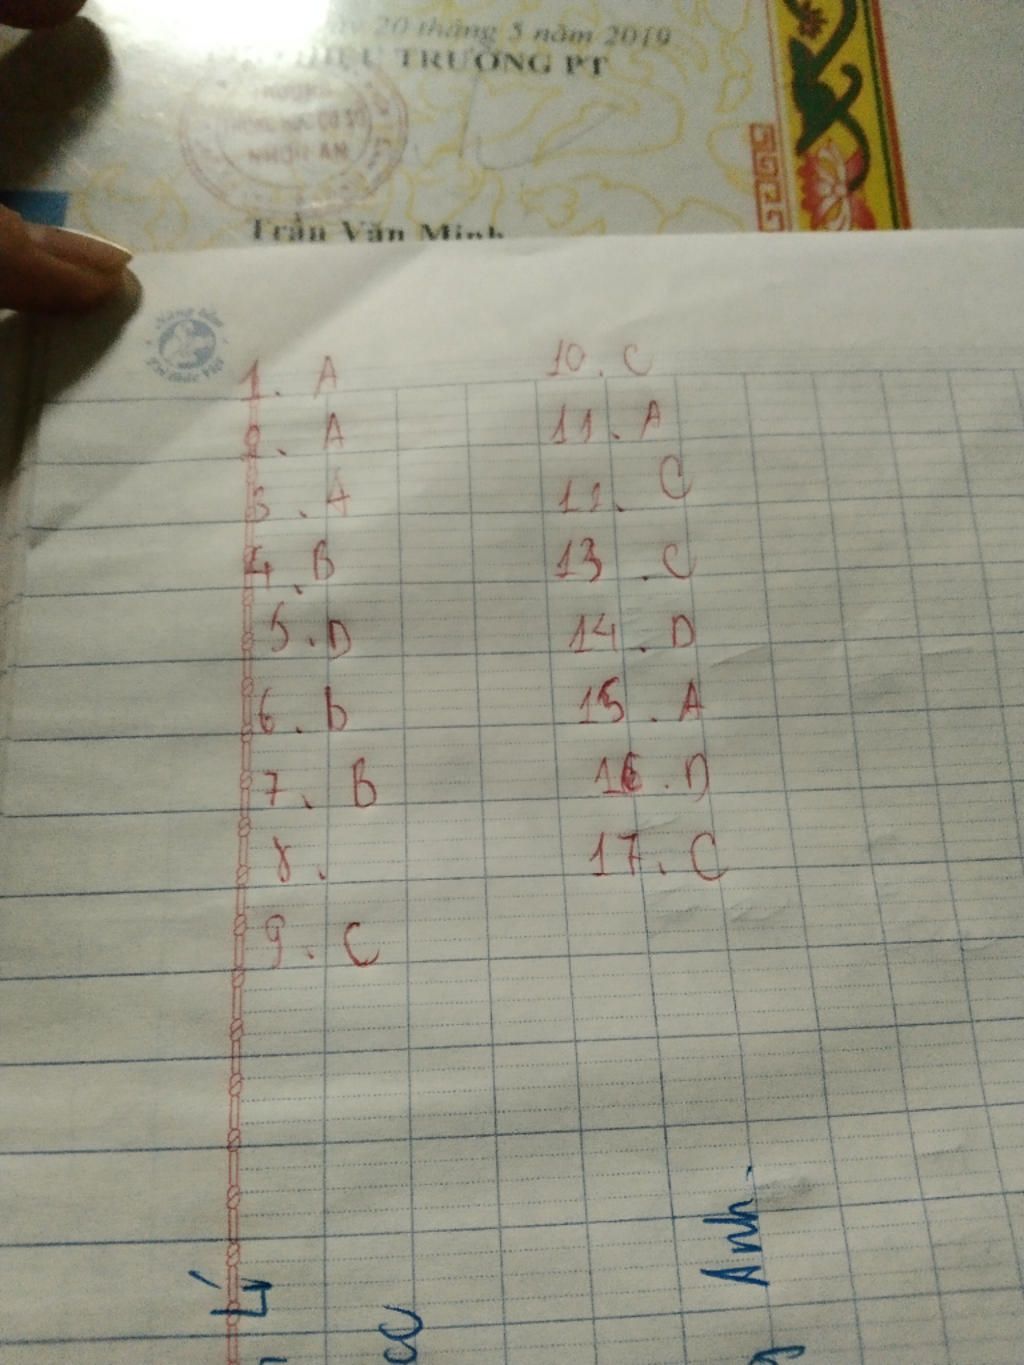 20 tháng 5 năm 2019
TRƯỞNG PT
NHƠN AN
Trần Văn Minh
1. A
2. A
3. A
4. B
5. D
6. b
7. B
8.
9. C
10. C
11. A
11. C
13. C
14. D
15. A
16. D
17. C
Lí
Anh